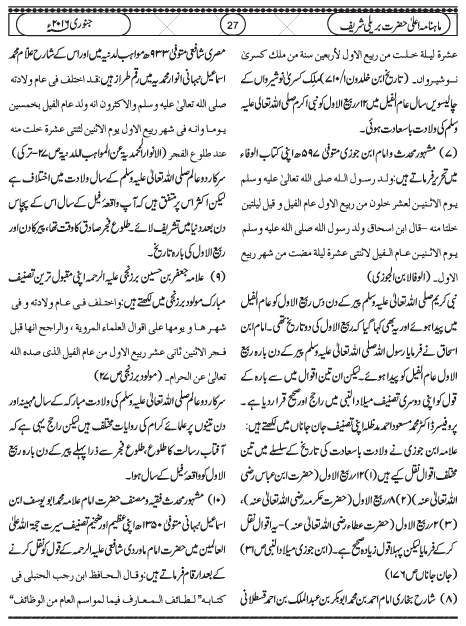 ماہنامہ اعلیٰ حضرت بریلی شریف
27
جنوری ۲۰۱۶ء
عشرۃ لیلۃ خلت من ربیع الاول لأربعین سنۃ من ملک کسریٰ
نوشیرواں۔ (تاریخ ابن خلدون ۷۱۰/۱) ملک کسریٰ نوشیرواں کے
چالیسویں سال عام الفیل میں ۱۲؍ربیع الاول کو نبی اکرم صلی اللہ تعالیٰ علیہ
وسلم کی ولادت باسعادت ہوئی۔
(۷) مشہور محدث و امام ابن جوزی متوفیٰ ۵۹۷ھ اپنی کتاب الوفاء
میں تحریر فرماتے ہیں: ولد رسول اللہ صلی اللہ تعالی علیہ وسلم
یوم الاثنین لعشر خلون من ربیع الاول عام الفیل و قیل لیلتین
خلتا منہ - قال ابن اسحاق ولد رسول اللہ صلی اللہ علیہ وسلم
یوم الاثنین عام الفیل لاثنتی عشرۃ لیلۃ مضت من شھر ربیع
الاول۔ (الوفا لابن الجوزی)
نبی کریم صلی اللہ تعالیٰ علیہ وسلم پیر کے دن دس ربیع الاول کو عام الفیل
میں پیدا ہوئے اور یہ بھی کہا گیا کہ ربیع الاول کی دو تاریخ تھی۔ امام ابن
اسحاق نے فرمایا رسول اللہ صلی اللہ تعالیٰ علیہ وسلم پیر کے دن بارہ ربیع
الاول عام الفیل کو پیدا ہوئے۔ لیکن ان تین اقوال میں سے بارہ کے
قول کو اپنی دوسری تصنیف میلاد النبی میں راجح اور صحیح قرار دیا ہے۔
پروفیسر ڈاکٹر محمد مسعود احمد مدظلہ اپنی تصنیف جان جاناں میں لکھتے ہیں:
علامہ ابن جوزی نے ولادت باسعادت کی تاریخ کے سلسلے میں تین
مختلف اقوال نقل کیے ہیں (۱) ۱۲ ربیع الاول (حضرت ابن عباس رضی
اللہ تعالیٰ عنہ) (۲) ۸؍ربیع الاول (حضرت عکرمہ رضی اللہ تعالیٰ عنہ)،
(۳) ۲؍ربیع الاول (حضرت عطاء رضی اللہ تعالیٰ عنہ)۔ یہ اقوال نقل
کر کے فرمایا لیکن پہلا قول زیادہ صحیح ہے۔ (ابن جوزی میلاد النبی ص ۳۱)
(جان جاناں ص ۱۷۶)
(۸) شارح بخاری امام احمد بن محمد ابوبکر بن عبد الملک بن احمد قسطلانی
مصری شافعی متوفیٰ ۹۳۳ھ مواہب لدنیہ میں اور اس کے شارح علام محمد
اسماعیل نبہانی انوار محمدیہ میں رقم طراز ہیں: قد اختلف فی عام ولادتہ
صلی اللہ تعالیٰ علیہ وسلم والاکثرون انہ ولد عام الفیل بخمسین
یوما وانہ فی شھر ربیع الاول یوم الاثنین لثنتی عشرۃ خلت منہ
عند طلوع الفجر (الانوار المحمدیۃ عن المواہب اللدنیۃ ص ۲۷- ترکی)
سرکار دو عالم صلی اللہ تعالیٰ علیہ وسلم کے سال ولادت میں اختلاف ہے
لیکن اکثر اس پر متفق ہیں کہ آپ واقعۂ فیل کے سال اس کے پچاس
دن بعد دنیا میں تشریف لائے۔ طلوع فجر صادق کا وقت تھا، پیر کا دن اور
ربیع الاول کی بارہ تاریخ۔
(۹) علامہ جعفر بن حسین برزنجی علیہ الرحمہ اپنی مقبول ترین تصنیف
مبارک مولود برزنجی میں لکھتے ہیں: واختلف فی عام ولادتہ و فی
شھرھا و یومھا علی اقوال العلماء المرویۃ، والراجح انھا قبل
فجر الاثنین ثانی عشر ربیع الاول من عام الفیل الذی صدہ اللہ
تعالیٰ عن الحرام۔ (مولود برزنجی ص ۲۷)
سرکار دو عالم صلی اللہ تعالیٰ علیہ وسلم کی ولادت مبارکہ کے سال مہینہ اور
دن تینوں پر علمائے کرام کی روایات مختلف ہیں لیکن راجح یہی ہے کہ
آفتاب رسالت کا طلوع، طلوع فجر سے ذرا پہلے پیر کے دن بارہ ربیع
الاول کو واقعۂ فیل کے سال ہوا۔
(۱۰) مشہور محدث فقیہ و مصنف حضرت امام علامہ محمد ابو یوسف ابن
اسماعیل نبہانی متوفیٰ ۱۳۵۰ھ اپنی عظیم اور ضخیم تصنیف سیرت حجۃ اللہ علی
العالمین میں حضرت امام ماوردی شافعی علیہ الرحمہ کے قول کو نقل کرنے
کے بعد ارقام فرماتے ہیں: وقال الحافظ ابن رجب الحنبلی فی
کتابہ "لطائف المعارف فیما لمواسم العام من الوظائف"